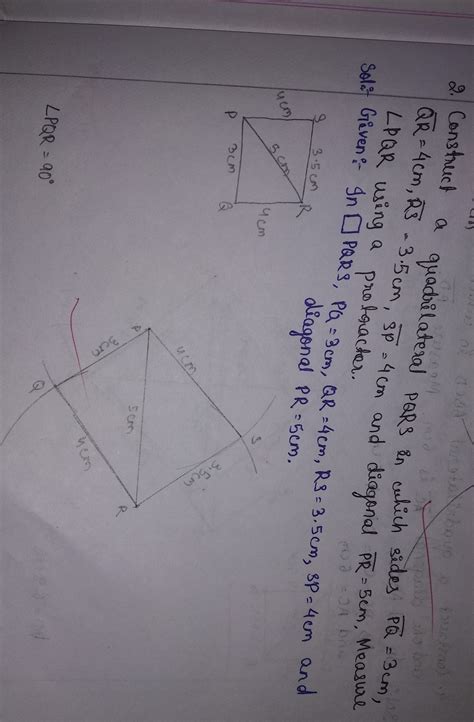 2. Construct a quadrilateral PQRS in which sides PQ = 3cm,
QR = 4cm, RS = 3.5cm, SP = 4cm and diagonal PR = 5cm, Measure
∠PQR using a protractor.
Sol:- Given:- In □ PQRS, PQ = 3cm, QR = 4cm, RS = 3.5cm, SP = 4cm and
diagonal PR = 5cm.
S
3.5cm
R
4cm
5cm
4cm
P
3cm
Q
S
4cm
3.5cm
P
5cm
R
3cm
4cm
Q
∠PQR = 90°